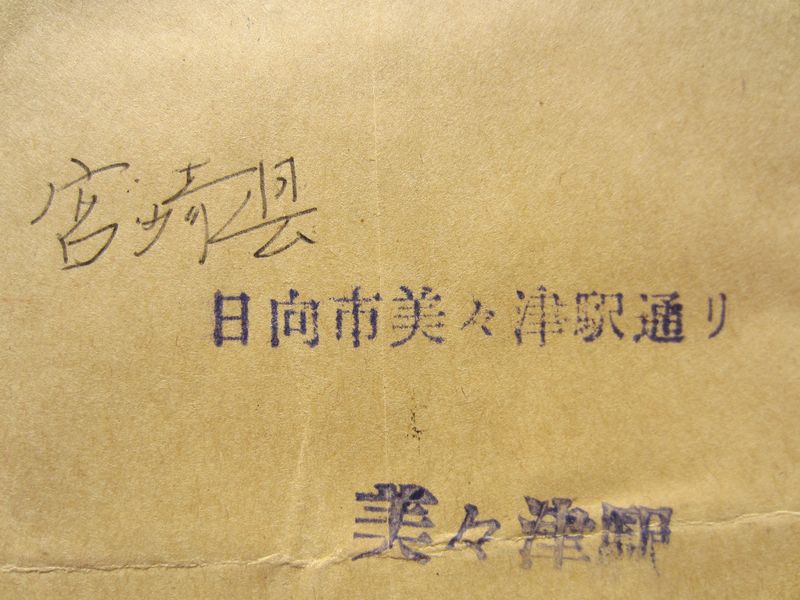 宮崎県
日向市美々津駅通り
美々津駅